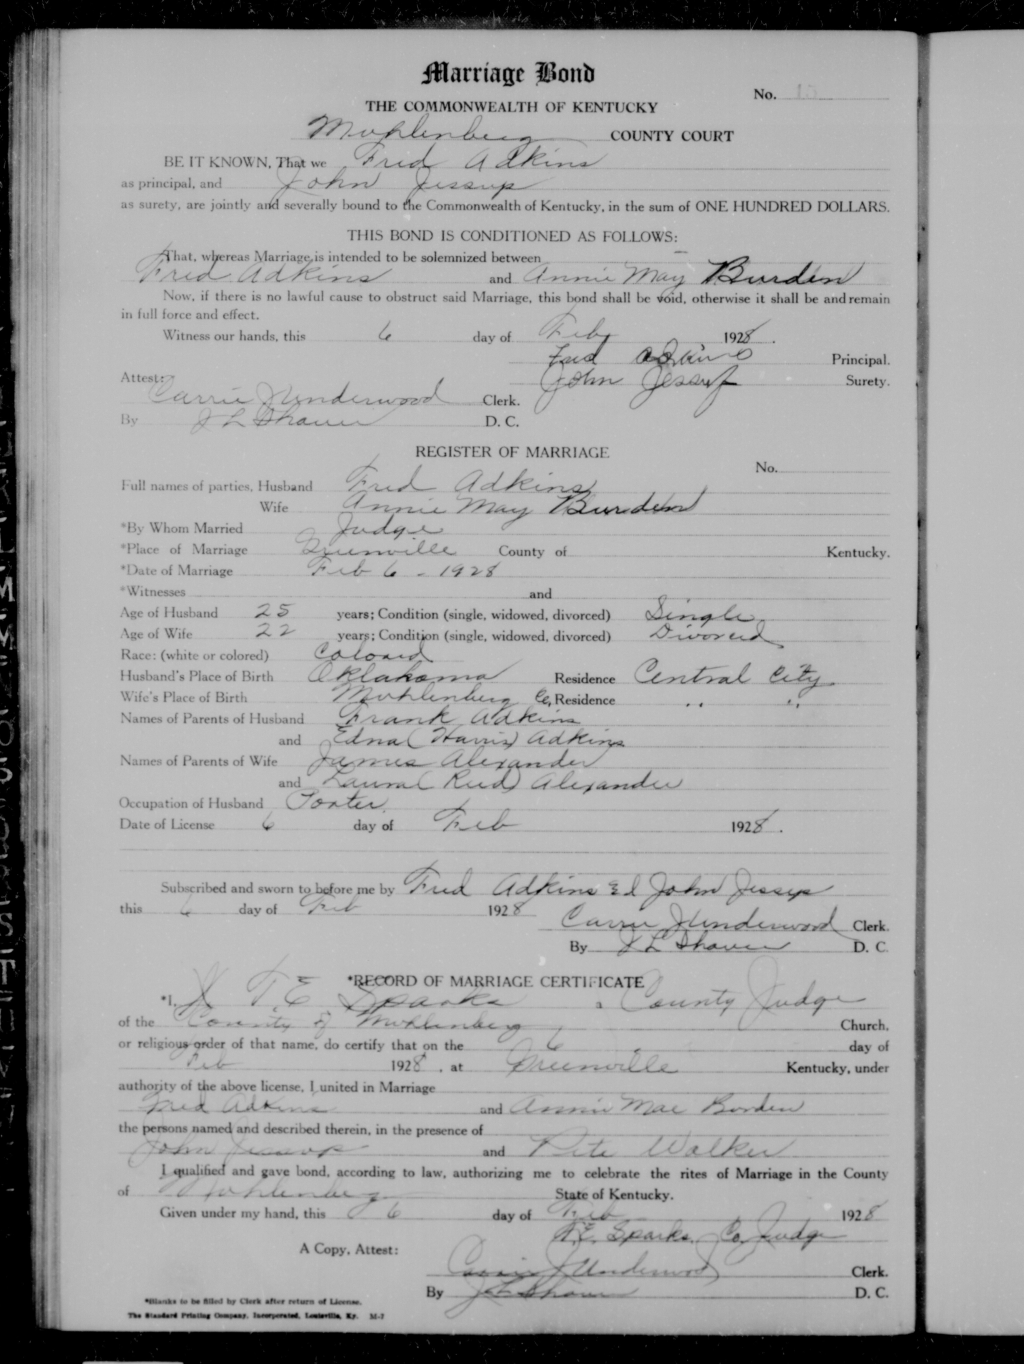 Marriage Bond
No.
THE COMMONWEALTH OF KENTUCKY
Muhlenberg COUNTY COURT
BE IT KNOWN, That we Fred Adkins
as principal, and John Jessup
as surety, are jointly and severally bound to the Commonwealth of Kentucky, in the sum of ONE HUNDRED DOLLARS.
THIS BOND IS CONDITIONED AS FOLLOWS:
That, whereas Marriage is intended to be solemnized between
Fred Adkins and Annie May Burden
Now, if there is no lawful cause to obstruct said Marriage, this bond shall be void, otherwise it shall be and remain
in full force and effect.
Witness our hands, this 6 day of Feb 1928.
Fred Adkins Principal.
John Jessup Surety.
Attest:
Carrie J Underwood Clerk.
By J L Shaver D. C.
REGISTER OF MARRIAGE
No.
Full names of parties, Husband Fred Adkins
Wife Annie May Burden
*By Whom Married Judge
*Place of Marriage Greenville County of Kentucky.
*Date of Marriage Feb 6 - 1928
*Witnesses and
Age of Husband 25 years; Condition (single, widowed, divorced) Single
Age of Wife 22 years; Condition (single, widowed, divorced) Divorced
Race: (white or colored) Colored
Husband's Place of Birth Oklahoma Residence Central City
Wife's Place of Birth Muhlenberg Co, Residence " "
Names of Parents of Husband Frank Adkins
and Edna (Harris) Adkins
Names of Parents of Wife James Alexander
and Laura (Reed) Alexander
Occupation of Husband Porter
Date of License 6 day of Feb 1928.
Subscribed and sworn to before me by Fred Adkins & John Jessup
this 6 day of Feb 1928
Carrie J Underwood Clerk.
By J L Shaver D. C.
*RECORD OF MARRIAGE CERTIFICATE
*I, T. E Sparks a County Judge
of the County of Muhlenberg Church,
or religious order of that name, do certify that on the 6 day of
Feb 1928, at Greenville Kentucky, under
authority of the above license, I united in Marriage
Fred Adkins and Annie Mae Borden
the persons named and described therein, in the presence of
John Jessup and Pete Walker
I qualified and gave bond, according to law, authorizing me to celebrate the rites of Marriage in the County
of Muhlenberg State of Kentucky.
Given under my hand, this 6 day of Feb 1928
T. E. Sparks, Co. Judge
A Copy, Attest:
Carrie J Underwood Clerk.
By J L Shaver D. C.
*Blanks to be filled by Clerk after return of License.
The Standard Printing Company, Incorporated, Louisville, Ky. M-7